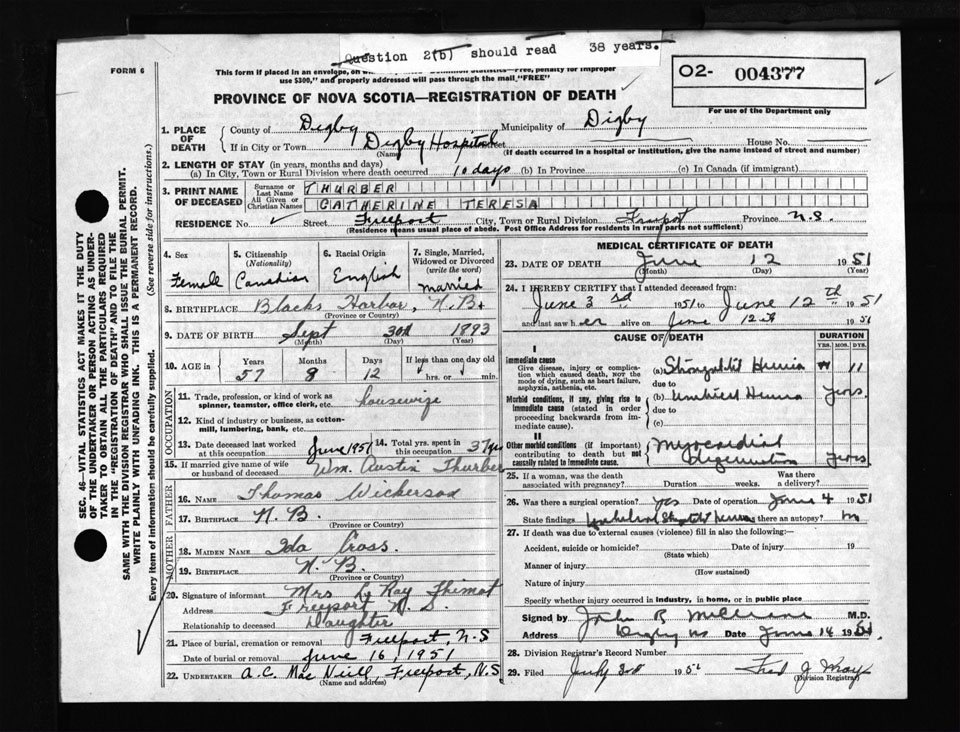 Question 2(b) should read 38 years.
FORM 6
This form if placed in an envelope, on Statistics—Free, penalty for improper
use $300," and properly addressed will pass through the mail "FREE"
O2- 004377
For use of the Department only
PROVINCE OF NOVA SCOTIA—REGISTRATION OF DEATH
1. PLACE OF DEATH
County of Digby Municipality of Digby
If in City or Town Digby Hospital Street House No.
(Name) (If death occurred in a hospital or institution, give the name instead of street and number)
2. LENGTH OF STAY (in years, months and days)
(a) In City, Town or Rural Division where death occurred 10 days (b) In Province (c) In Canada (if immigrant)
3. PRINT NAME OF DECEASED
Surname or Last Name THURBER
All Given or Christian Names CATHERINE TERESA
RESIDENCE No. Street Freeport City, Town or Rural Division Freeport Province N.S.
(Residence means usual place of abode. Post Office Address for residents in rural parts not sufficient)
4. Sex Female
5. Citizenship (Nationality) Canadian
6. Racial Origin English
7. Single, Married, Widowed or Divorced (write the word) married
8. BIRTHPLACE Blacks Harbor, N.B.
(Province or Country)
9. DATE OF BIRTH Sept 30th 1893
(Month) (Day) (Year)
10. AGE in Years Months Days If less than one day old
57 8 12 hrs. or min.
OCCUPATION
11. Trade, profession, or kind of work as spinner, teamster, office clerk, etc. housewife
12. Kind of industry or business, as cotton-mill, lumbering, bank, etc.
13. Date deceased last worked at this occupation June 1951
14. Total yrs. spent in this occupation 37 yrs
15. If married give name of wife or husband of deceased Wm. Austin Thurber
FATHER
16. NAME Thomas
17. BIRTHPLACE N.B.
(Province or Country)
MOTHER
18. MAIDEN NAME Ida Cross.
19. BIRTHPLACE N.B.
(Province or Country)
20. Signature of informant Mrs Ray
Address Freeport N.S.
Relationship to deceased Daughter
21. Place of burial, cremation or removal Freeport, N.S
Date of burial or removal June 16, 1951
22. UNDERTAKER A.C. Mac Neill, Freeport, N.S
(Name and address)
MEDICAL CERTIFICATE OF DEATH
23. DATE OF DEATH June 12 1951
(Month) (Day) (Year)
24. I HEREBY CERTIFY that I attended deceased from:
June 3rd 1951 to June 12th 1951
and last saw her alive on June 12th 1951
CAUSE OF DEATH
DURATION
YRS. MOS. DYS.
I
Immediate cause
Give disease, injury or complication which caused death, NOT the mode of dying, such as heart failure, asphyxia, asthenia, etc.
(a) Hernia 11
due to
Morbid conditions, if any, giving rise to immediate cause (stated in order proceeding backwards from immediate cause).
(b) Hernia years.
due to
(c)
II
Other morbid conditions (if important) contributing to death but not causally related to immediate cause.
Myocardial degeneration years
25. If a woman, was the death associated with pregnancy? Duration weeks. Was there a delivery?
26. Was there a surgical operation? yes Date of operation June 4 1951
State findings Was there an autopsy? no
27. If death was due to external causes (violence) fill in also the following:—
Accident, suicide or homicide? Date of injury 19
(State which)
Manner of injury
(How sustained)
Nature of injury
Specify whether injury occurred in industry, in home, or in public place
Signed by John R M.D.
Address Digby NS Date June 14 1951
28. Division Registrar's Record Number
29. Filed July 3rd 1951 Fred J
(Division Registrar)
SEC. 46—VITAL STATISTICS ACT MAKES IT THE DUTY
OF THE UNDERTAKER OR PERSON ACTING AS UNDER-
TAKER TO OBTAIN ALL THE PARTICULARS REQUIRED
IN THE "REGISTRATION OF DEATH" AND TO FILE THE
SAME WITH THE DIVISION REGISTRAR WHO SHALL ISSUE THE BURIAL PERMIT.
WRITE PLAINLY WITH UNFADING INK. THIS IS A PERMANENT RECORD.
Every item of information should be carefully supplied. (See reverse side for instructions.)